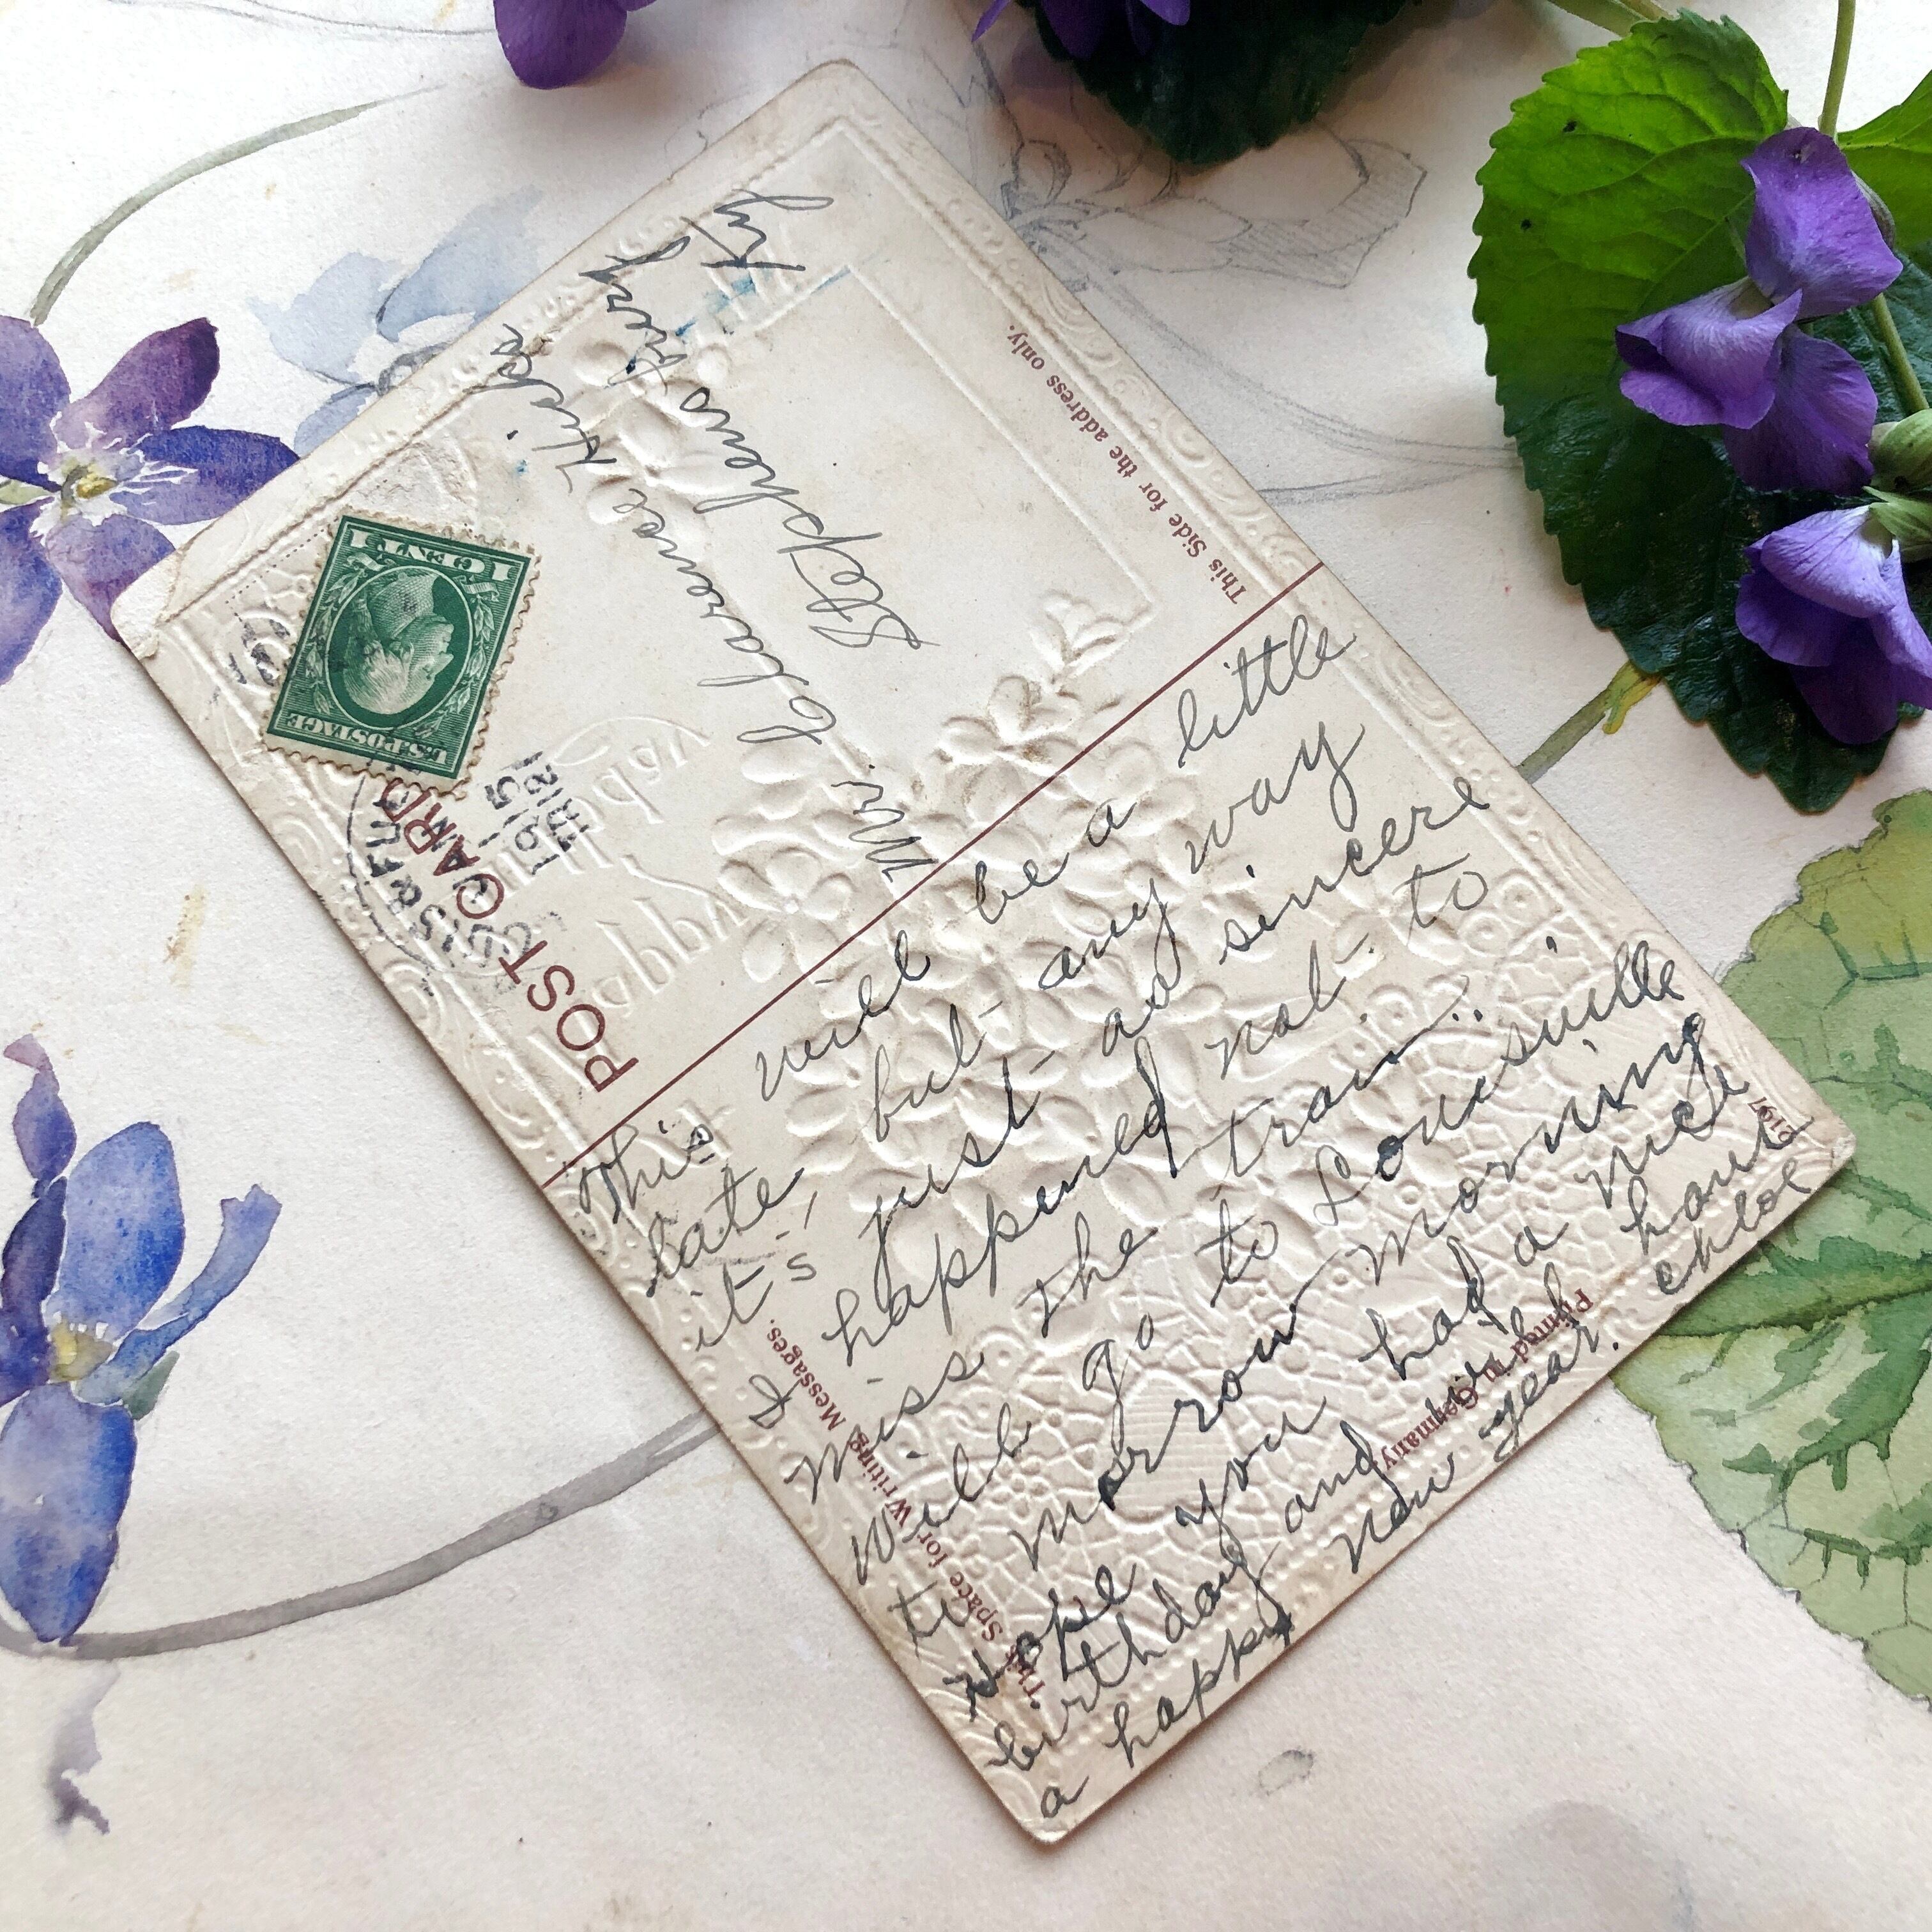 POST CARD
This Side for the address only.
This Space for Writing Messages.
U.S. POSTAGE
1 CENT
1915
Mr. Clarence Hicks
Stephensburg
Ky
This will be a little
late but any way
it's just as sincere
I happened not to
miss the train.
Will go to Louisville
to morrow morning
Hope you had a nice
birthday and will have
a happy New year.
Chloe
Printed in Germany
2197